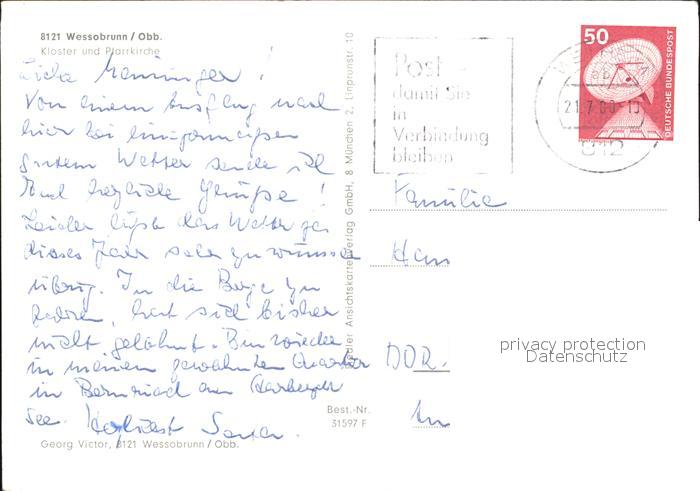 8121 Wessobrunn / Obb.
Kloster und Pfarrkirche
Liebe !
Von einem Ausflug nach
hier bei einigermaßen
gutem Wetter sende ich
Euch herzliche Grüße !
Leider läßt das Wetter ja
dieses Jahr sehr zu wünschen
übrig. In die Berge zu
fahren, hat sich bisher
nicht gelohnt. Bin wieder
in meinem gewohnten Quartier
in Bernried am Starnberger
See. Herzlichst
Georg Victor, 8121 Wessobrunn / Obb.
Best.-Nr.
31597 F
Ansichtskartenverlag GmbH, 8 München 2, Linprunstr. 10
Post -
damit Sie
in
Verbindung
bleiben
21.7.80-
812
50
DEUTSCHE BUNDESPOST
Familie
Hans
privacy protection
Datenschutz